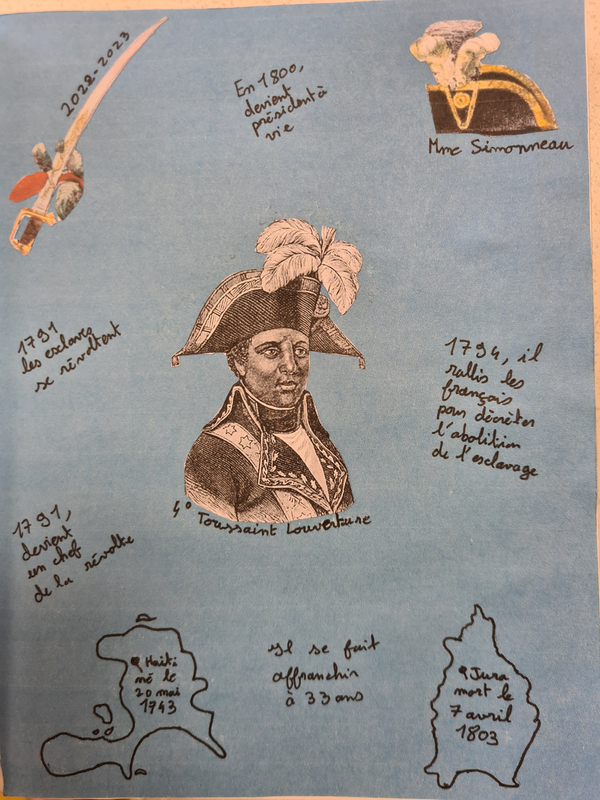 2022-2023
En 1800,
devient
président à
vie
Mme Simonneau
1791
les esclaves
se révoltent
1794, il
rallis les
français
pour décrèter
l'abolition
de l'esclavage
4° Toussaint Louverture
1791,
devient
un chef
de la révolte
Haïti
né le
20 mai
1743
Il se fait
affranchir
à 33 ans
Jura
mort le
7 avril
1803